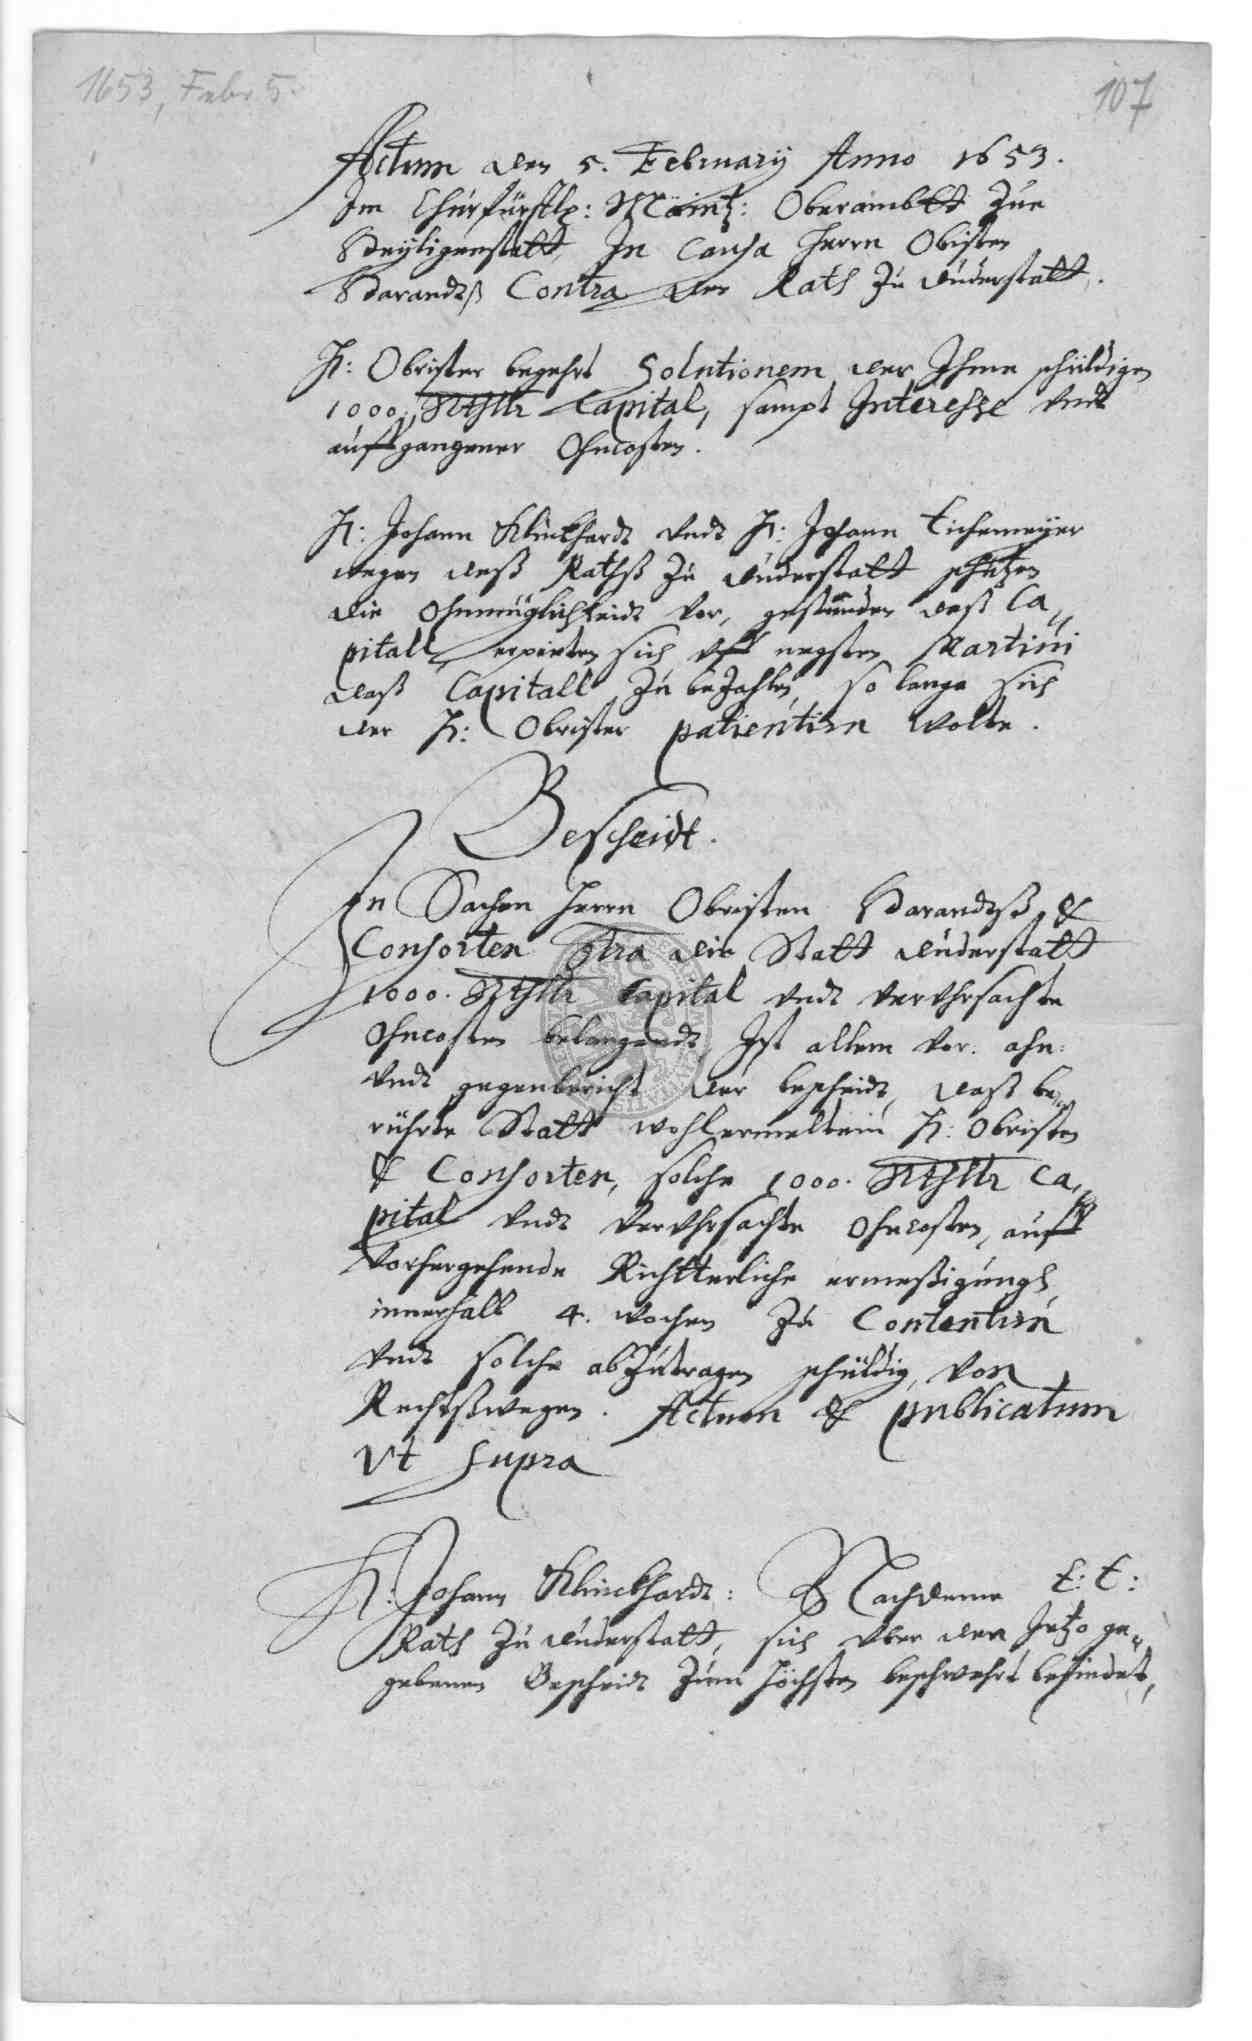 1653, Febr. 5.
107
Actum den 5. February Anno 1653.
Im Churfürstlg: Maintz: Oberambtt Zue
Heyligenstatt, In Causa Herrn Obristen
Contra der Rath Zu Duderstatt.
H: Obrister begehrt Solutionem der Ihme schuldigen
1000. Rthlr Capital, sampt Interesse undt
auffgangener Ohncosten.
H: Johann Klinckhardt undt H: Johann Eichemeyer
wegen deß Rathß Zu Duderstatt schützen
die Ohnmüglichkeidt vor, gestunden deß Ca„
pitall, erpieten sich uff negsten Martini
daß Capitall Zu beZahlen, so lange sich
der H: Obrister patientirn wolte.
Bescheidt.
In Sachen Herrn Obristen &
Consorten Ctra die Statt Duderstatt
1000. Rthlr Capital undt verUhrsachte
Ohncosten belangendt, Ist allem vor. ahn:
undt gegenbericht der bescheidt, daß be„
rührte Statt wohlermeltem H: Obristen
& Consorten, solche 1000. Rthlr Ca„
pital undt verUhrsachte Ohncosten, auff
vorhergehende Richtterliche ermeßigung,
innerhalb 4. wochen Zu Contentirn
undt solche abZutragen schuldig, von
Rechtßwegen. Actum & publicatum
Ut supra
H: Johann Klinckhardt: Nachdeme E: E:
Rath Zu Duderstatt, sich uber den Jetzo ge„
gebenen Bescheidt Zum höchsten beschwehrt befindet,